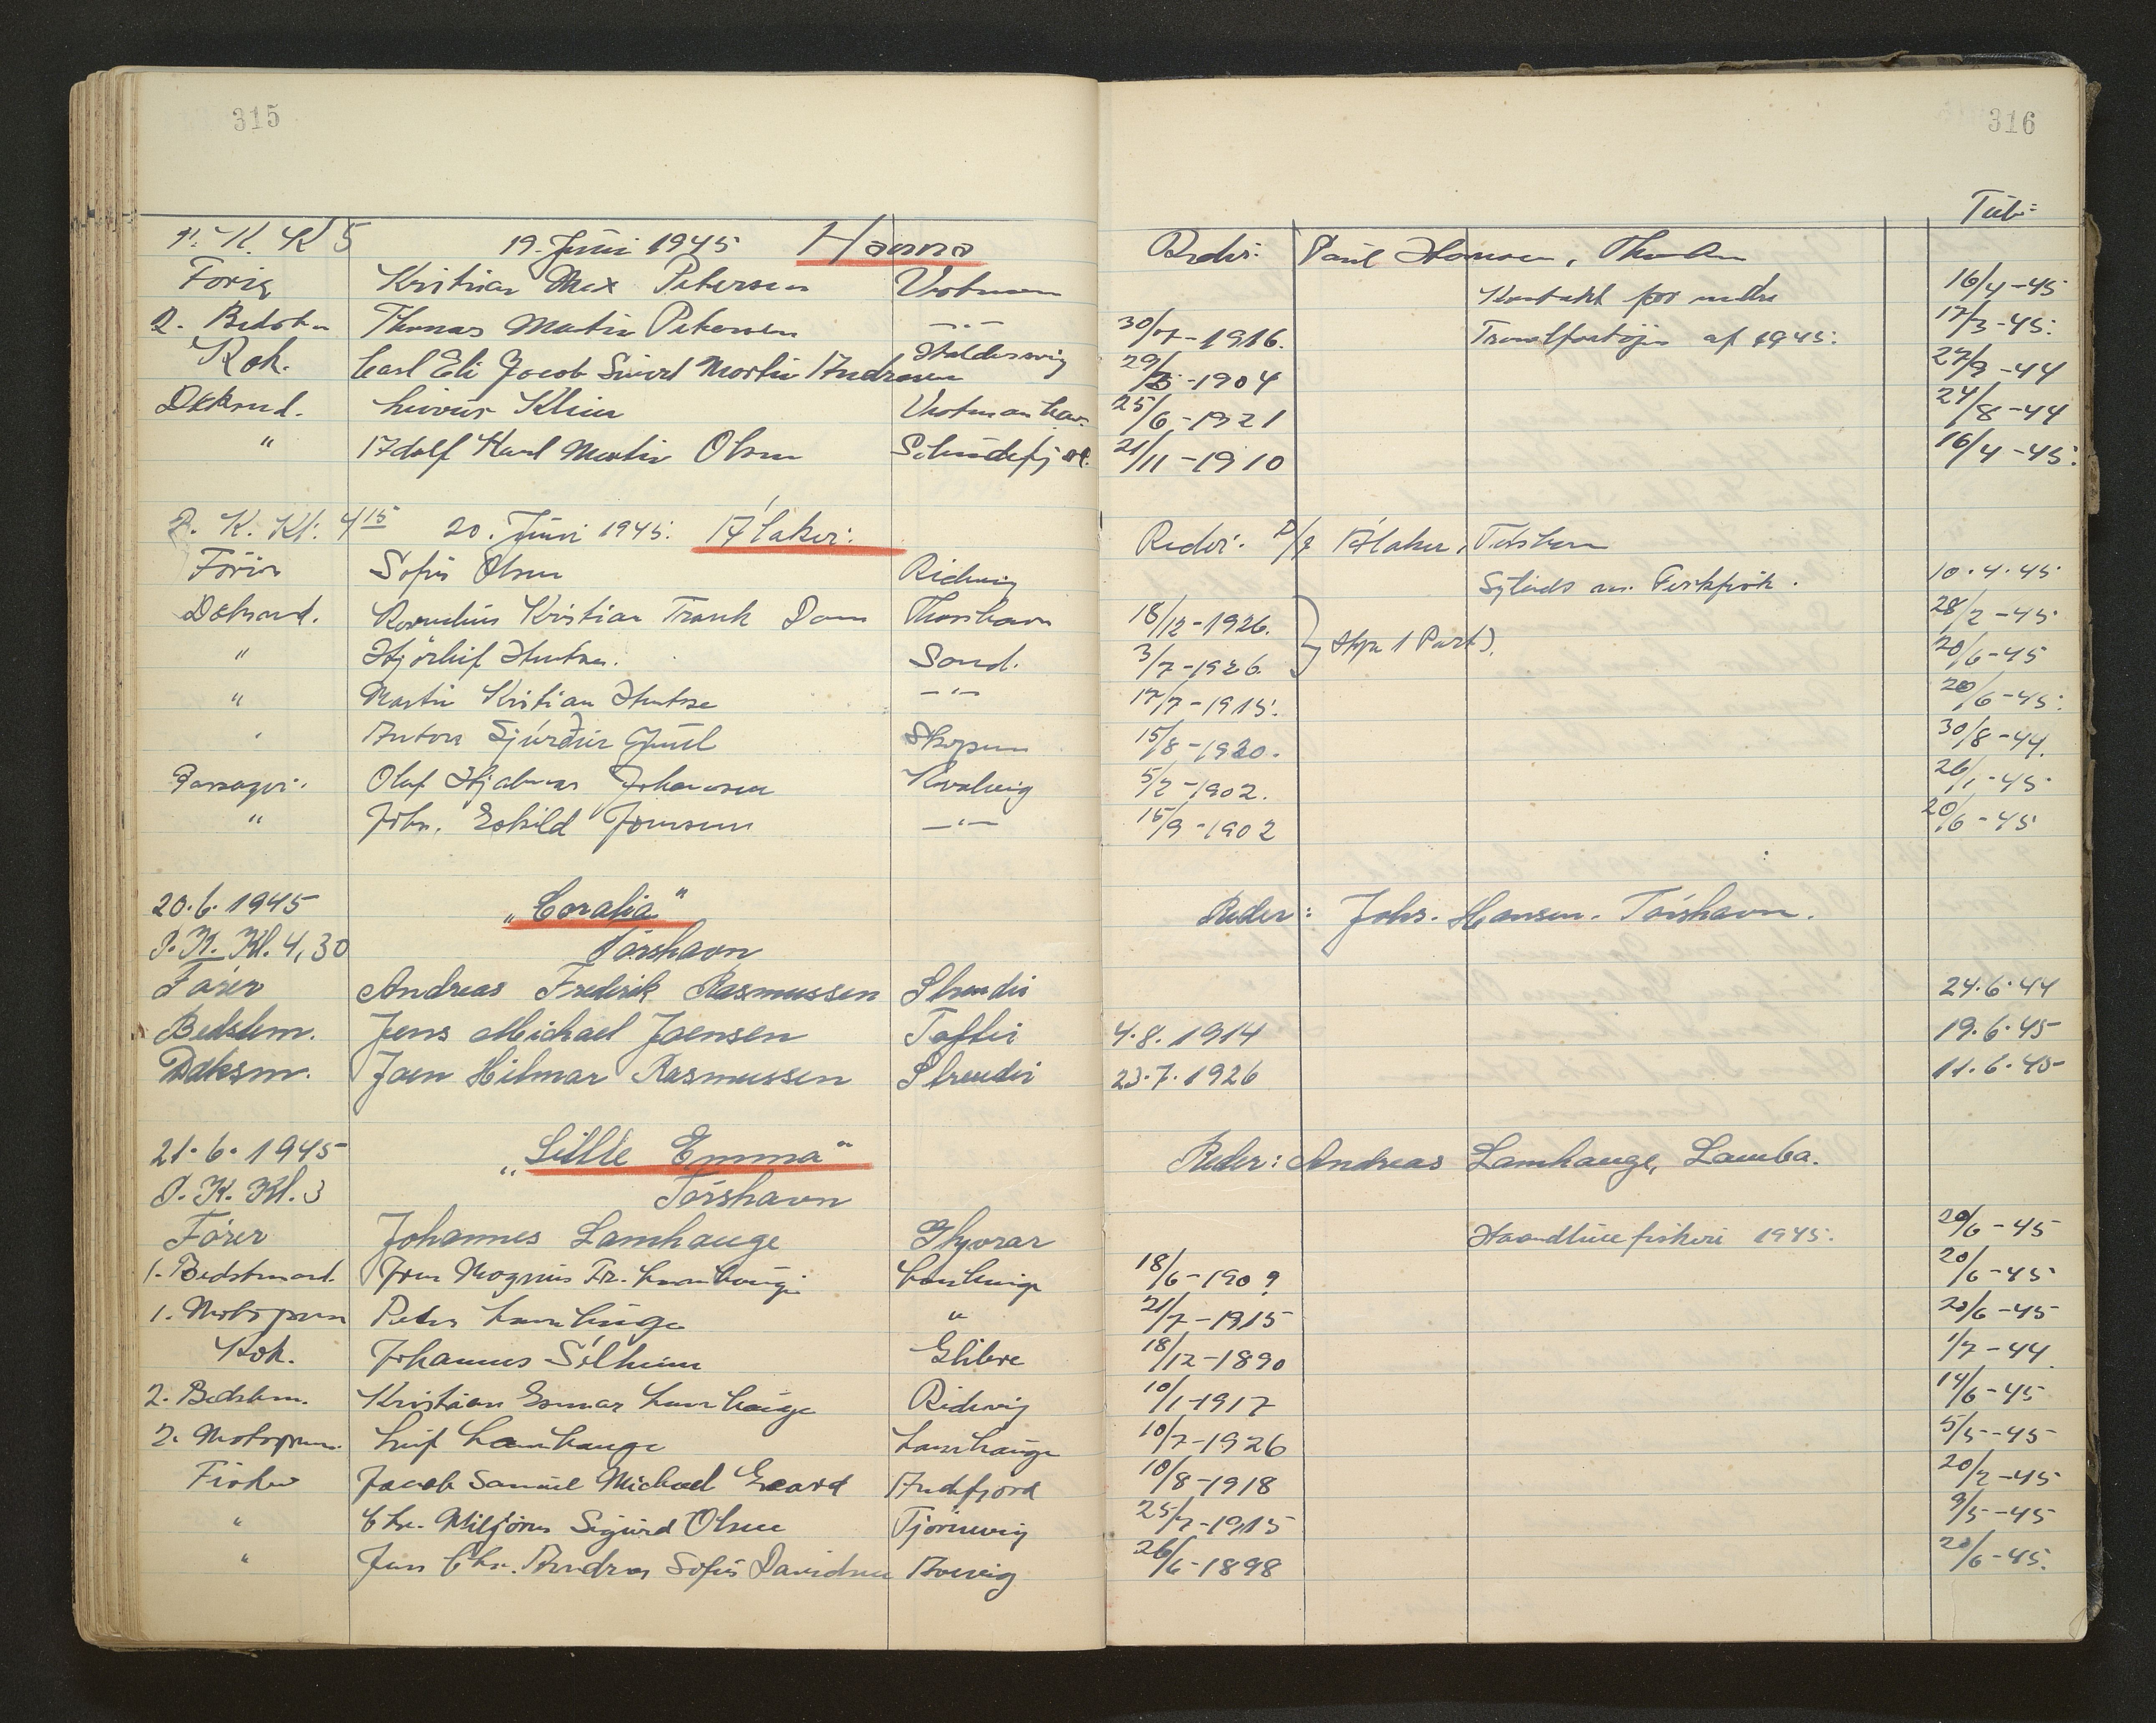 315
316
Tub:
P. K. Kl 5 19. Juni 1945 Hanna Reder: Paul Hansen, Thorshavn
Förer Kristian Max Petersen Vestman 16/4-45
Kontrakt for mittre
2. Bedstm Thomas Martin Petersen -"- 30/7-1916. 17/3-45.
Transitfartøjer af 1945.
Kok. Carl Eli Jacob Sivert Martin Andreasen Haldersvig 29/5-1904 27/9-44
Dæksmd. Livius Klein Vestmanhav. 25/6-1921 24/8-44
" Adolf Karl Martin Olsen Selmdefjord. 21/11-1910 16/4-45.
P. K. Kl: 4 15 20. Juni 1945. Alaker: Reder: P/f Alaker, Torshavn
Förer Sofus Olsen Ridevig 10.4.45
Dæksmd. Kornelius Kristian Frank Dam Thorshavn 18/12-1926. 28/2-45
} Hver 1 Part).
" Hjörleif Hentze. Sand. 3/7-1926. 20/6-45
" Martin Kristian Hentze -"- 17/7-1915. 20/6-45.
" Anton Sjúrður Juul Skopun 15/8-1920. 30/8-44.
Passager: Oluf Hjalmar Johannesen Kvalvig 5/2-1902. 26/1-45
" Johs. Eskild Joensen -"- 15/9-1902 20/6-45
20.6.1945 "Coralia" Reder: Johs. Hansen. Tórshavn.
P.K. Kl. 4,30 Tórshavn
Fører Andreas Frederik Rasmussen Strendir 24.6.44
Bedstem. Jens Michael Joensen Toftir 4.8.1914 19.6.45
Dæksm. Joen Hilmar Rasmussen Strendir 23.7.1926 11.6.45
21.6.1945 "Lille Emma" Reder: Andreas Lamhauge, Lamba.
P.K. Kl. 3 Tórshavn
Fører Johannes Lamhauge Glyvrar Haandlinefiskeri 1945. 20/6-45
1. Bedstmand. Jens Magnus Fr. Lamhauge Lamhauge 18/6-1909 20/6-45
1. Motorpasser Peter Lamhauge " 21/7-1915 20/6-45
Kok. Johannes Sólheim Glibre 18/12-1890 1/7-44
2. Bedstem. Kristian Esmar Lamhauge Ridevig 10/1-1917 14/6-45
2. Motorpas. Leif Lamhauge Lamhauge 10/7-1926 5/5-45
Fisker Jacob Samuel Michael Gaard Andefjord 10/8-1918 20/2-45
" Chr. Miljörn Sigurd Olsen Tjörnevig 25/7-1915 9/5-45
" Jens Chr. Andreas Sofus Davidsen Arevig 26/6-1898 20/6-45.